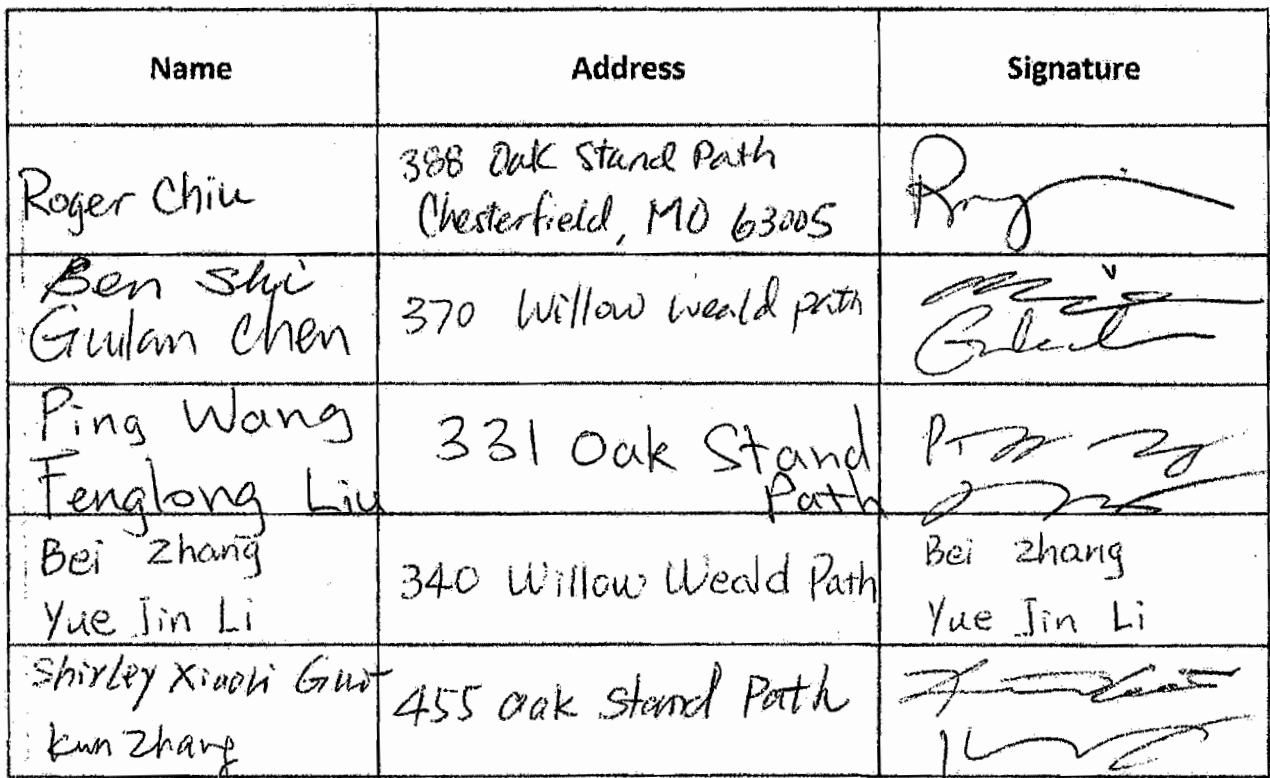 Name Address Signature
Roger Chiu
388 Oak Stand Path
Chesterfield, MO 63005
Ben Shi
Guilan Chen
370 Willow Weald path
Ping Wang
Fenglong Liu
331 Oak Stand
Path
Bei Zhang
Yue Jin Li
340 Willow Weald Path
Bei Zhang
Yue Jin Li
Shirley Xiaoli
Kun Zhang
455 Oak Stand Path